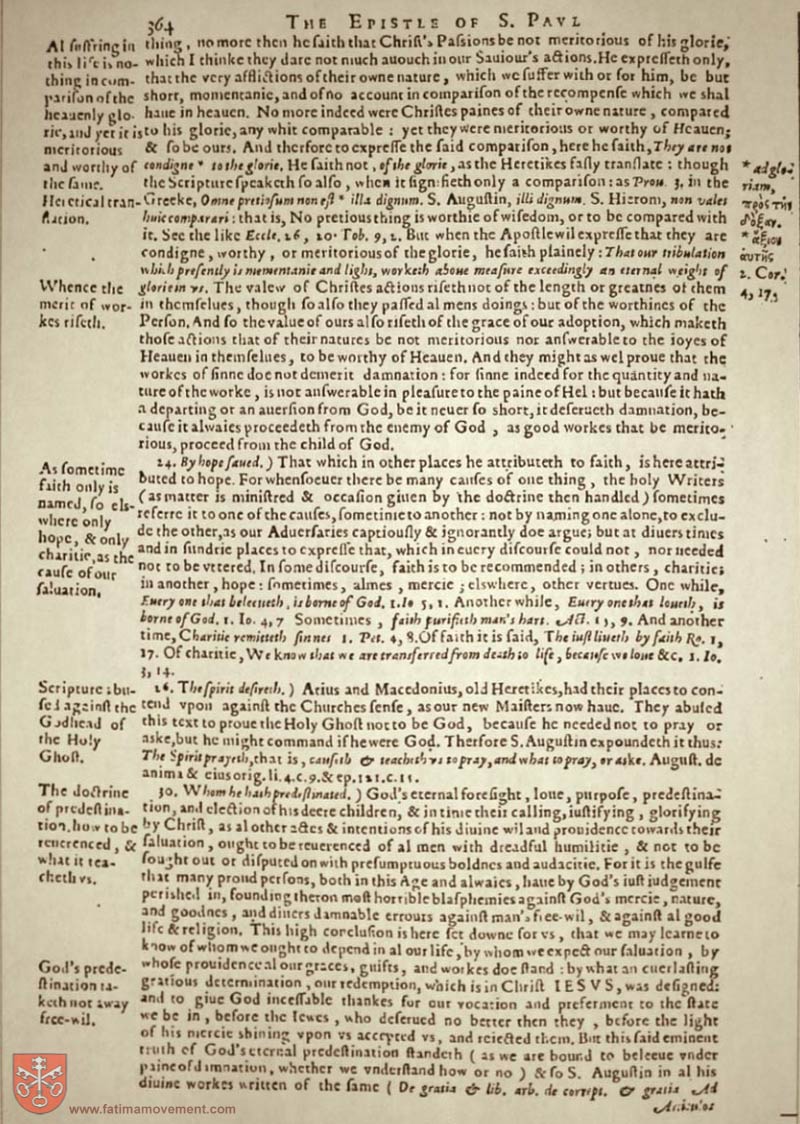 364 THE EPISTLE OF S. PAVL
thing, no more then he ſaith that Chriſt's Paſsions be not meritorious of his glorie,
which I thinke they dare not much auouch in our Sauiour's actions. He expreſſeth only,
that the very afflictions of their owne nature, which we ſuffer with or for him, be but
short, momentanie, and of no account in compariſon of the recompenſe which we shal
haue in heauen. No more indeed were Chriſtes paines of their owne nature, compared
to his glorie, any whit comparable: yet they were meritorious or worthy of Heauen;
& ſo be ours. And therfore to expreſſe the ſaid compariſon, here he ſaith, They are not
condigne * to the glorie. He ſaith not, of the glorie, as the Heretikes falſly tranſlate: though
the Scripture ſpeaketh ſo alſo, when it ſignifieth only a compariſon: as Prou. 3. in the
Greeke, Omne pretioſum non eſt * illa dignum. S. Auguſtin, illi dignum. S. Hierom, non valet
huic comparari: that is, No pretious thing is worthie of wiſedom, or to be compared with
it. See the like Eccle. 26, 20. Tob. 9, 2. But when the Apoſtle wil expreſſe that they are
condigne, worthy, or meritorious of the glorie, he ſaith plainely: That our tribulation
which preſently is momentanie and light, worketh aboue meaſure exceedingly an eternal weight of
glorie in vs. The valew of Chriſtes actions riſeth not of the length or greatnes of them
in themſelues, though ſo alſo they paſſed al mens doings: but of the worthines of the
Perſon. And ſo the value of ours alſo riſeth of the grace of our adoption, which maketh
thoſe actions that of their natures be not meritorious nor anſwerable to the ioyes of
Heauen in themſelues, to be worthy of Heauen. And they might as wel proue that the
workes of ſinne doe not demerit damnation: for ſinne indeed for the quantity and na-
ture of the worke, is not anſwerable in pleaſure to the paine of Hel: but becauſe it hath
a departing or an auerſion from God, be it neuer ſo short, it deſerueth damnation, be-
cauſe it alwaies proceedeth from the enemy of God, as good workes that be merito-
rious, proceed from the child of God.
24. By hope ſaued.) That which in other places he attributeth to faith, is here attri-
buted to hope. For whenſoeuer there be many cauſes of one thing, the holy Writers
(as matter is miniſtred & occaſion giuen by the doctrine then handled) ſometimes
referre it to one of the cauſes, ſometime to another: not by naming one alone, to exclu-
de the other, as our Aduerſaries captiouſly & ignorantly doe argue; but at diuers times
and in ſundrie places to expreſſe that, which in euery diſcourſe could not, nor needed
not to be vttered. In ſome diſcourſe, faith is to be recommended; in others, charitie;
in another, hope: ſometimes, almes, mercie; elswhere, other vertues. One while,
Euery one that beleeueth, is borne of God. 1. Io 5, 1. Another while, Euery one that loueth, is
borne of God. 1. Io. 4, 7 Sometimes, faith purifieth man's hart. Act. 15, 9. And another
time, Charitie remitteth ſinnes 1. Pet. 4, 8. Of faith it is ſaid, The iuſt liueth by faith Ro. 1,
17. Of charitie, We know that we are transferred from death to life, becauſe we loue &c. 1. Io.
3, 14.
26. The ſpirit deſireth.) Arius and Macedonius, old Heretikes, had their places to con-
tend vpon againſt the Churches ſenſe, as our new Maiſters now haue. They abuſed
this text to proue the Holy Ghoſt not to be God, becauſe he needed not to pray or
aske, but he might command if he were God. Therfore S. Auguſtin expoundeth it thus:
The Spirit prayeth, that is, cauſeth & teacheth vs to pray, and what to pray, or aske. Auguſt. de
anima & eius orig. li. 4. c. 9. & ep. 121. c. 11.
30. Whom he hath predeſtinated.) God's eternal foreſight, loue, purpoſe, predeſtina-
tion, and election of his deere children, & in time their calling, iuſtifying, glorifying
by Chriſt, as al other actes & intentions of his diuine wil and prouidence towards their
ſaluation, ought to be reuerenced of al men with dreadful humilitie, & not to be
ſought out or diſputed on with preſumptuous boldnes and audacitie. For it is the gulfe
that many proud perſons, both in this Age and alwaies, haue by God's iuſt iudgement
perished in, founding theron moſt horrible blaſphemies againſt God's mercie, nature,
and goodnes, and diuers damnable errours againſt man's free-wil, & againſt al good
life & religion. This high concluſion is here ſet downe for vs, that we may learne to
know of whom we ought to depend in al our life, by whom we expect our ſaluation, by
whoſe prouidence al our graces, guifts, and workes doe ſtand: by what an euerlaſting
gratious determination, our redemption, which is in Chriſt IESVS, was deſigned:
and to giue God inceſſable thankes for our vocation and preferment to the ſtate
we be in, before the Iewes, who deſerued no better then they, before the light
of his mercie shining vpon vs accepted vs, and reiected them. But this ſaid eminent
truth of God's eternal predeſtination ſtandeth (as we are bound to beleeue vnder
paine of damnation, whether we vnderſtand how or no) & ſo S. Auguſtin in al his
diuine workes written of the ſame (De gratia & lib. arb. de corrept. & gratia Ad
Al ſuffring in
this life is no-
thing in com-
pariſon of the
heauenly glo-
rie, and yet it is
meritorious
and worthy of
the ſame.
Heretical tran-
ſlation.
Whence the
merit of wor-
kes riſeth.
As ſometime
faith only is
named, ſo els-
where only
hope, & only
charitie, as the
cauſe of our
ſaluation,
Scripture abu-
ſed againſt the
Godhead of
the Holy
Ghoſt.
The doctrine
of predeſtina-
tion, how to be
reuerenced, &
what it tea-
cheth vs.
God's prede-
ſtination ta-
keth not away
free-wil.
* ad glo-
riam,
πρὸς τὴν
δόξαν.
* ἄξιον
αυτῆς
2. Cor.
4, 17,
www.fatimamovement.com